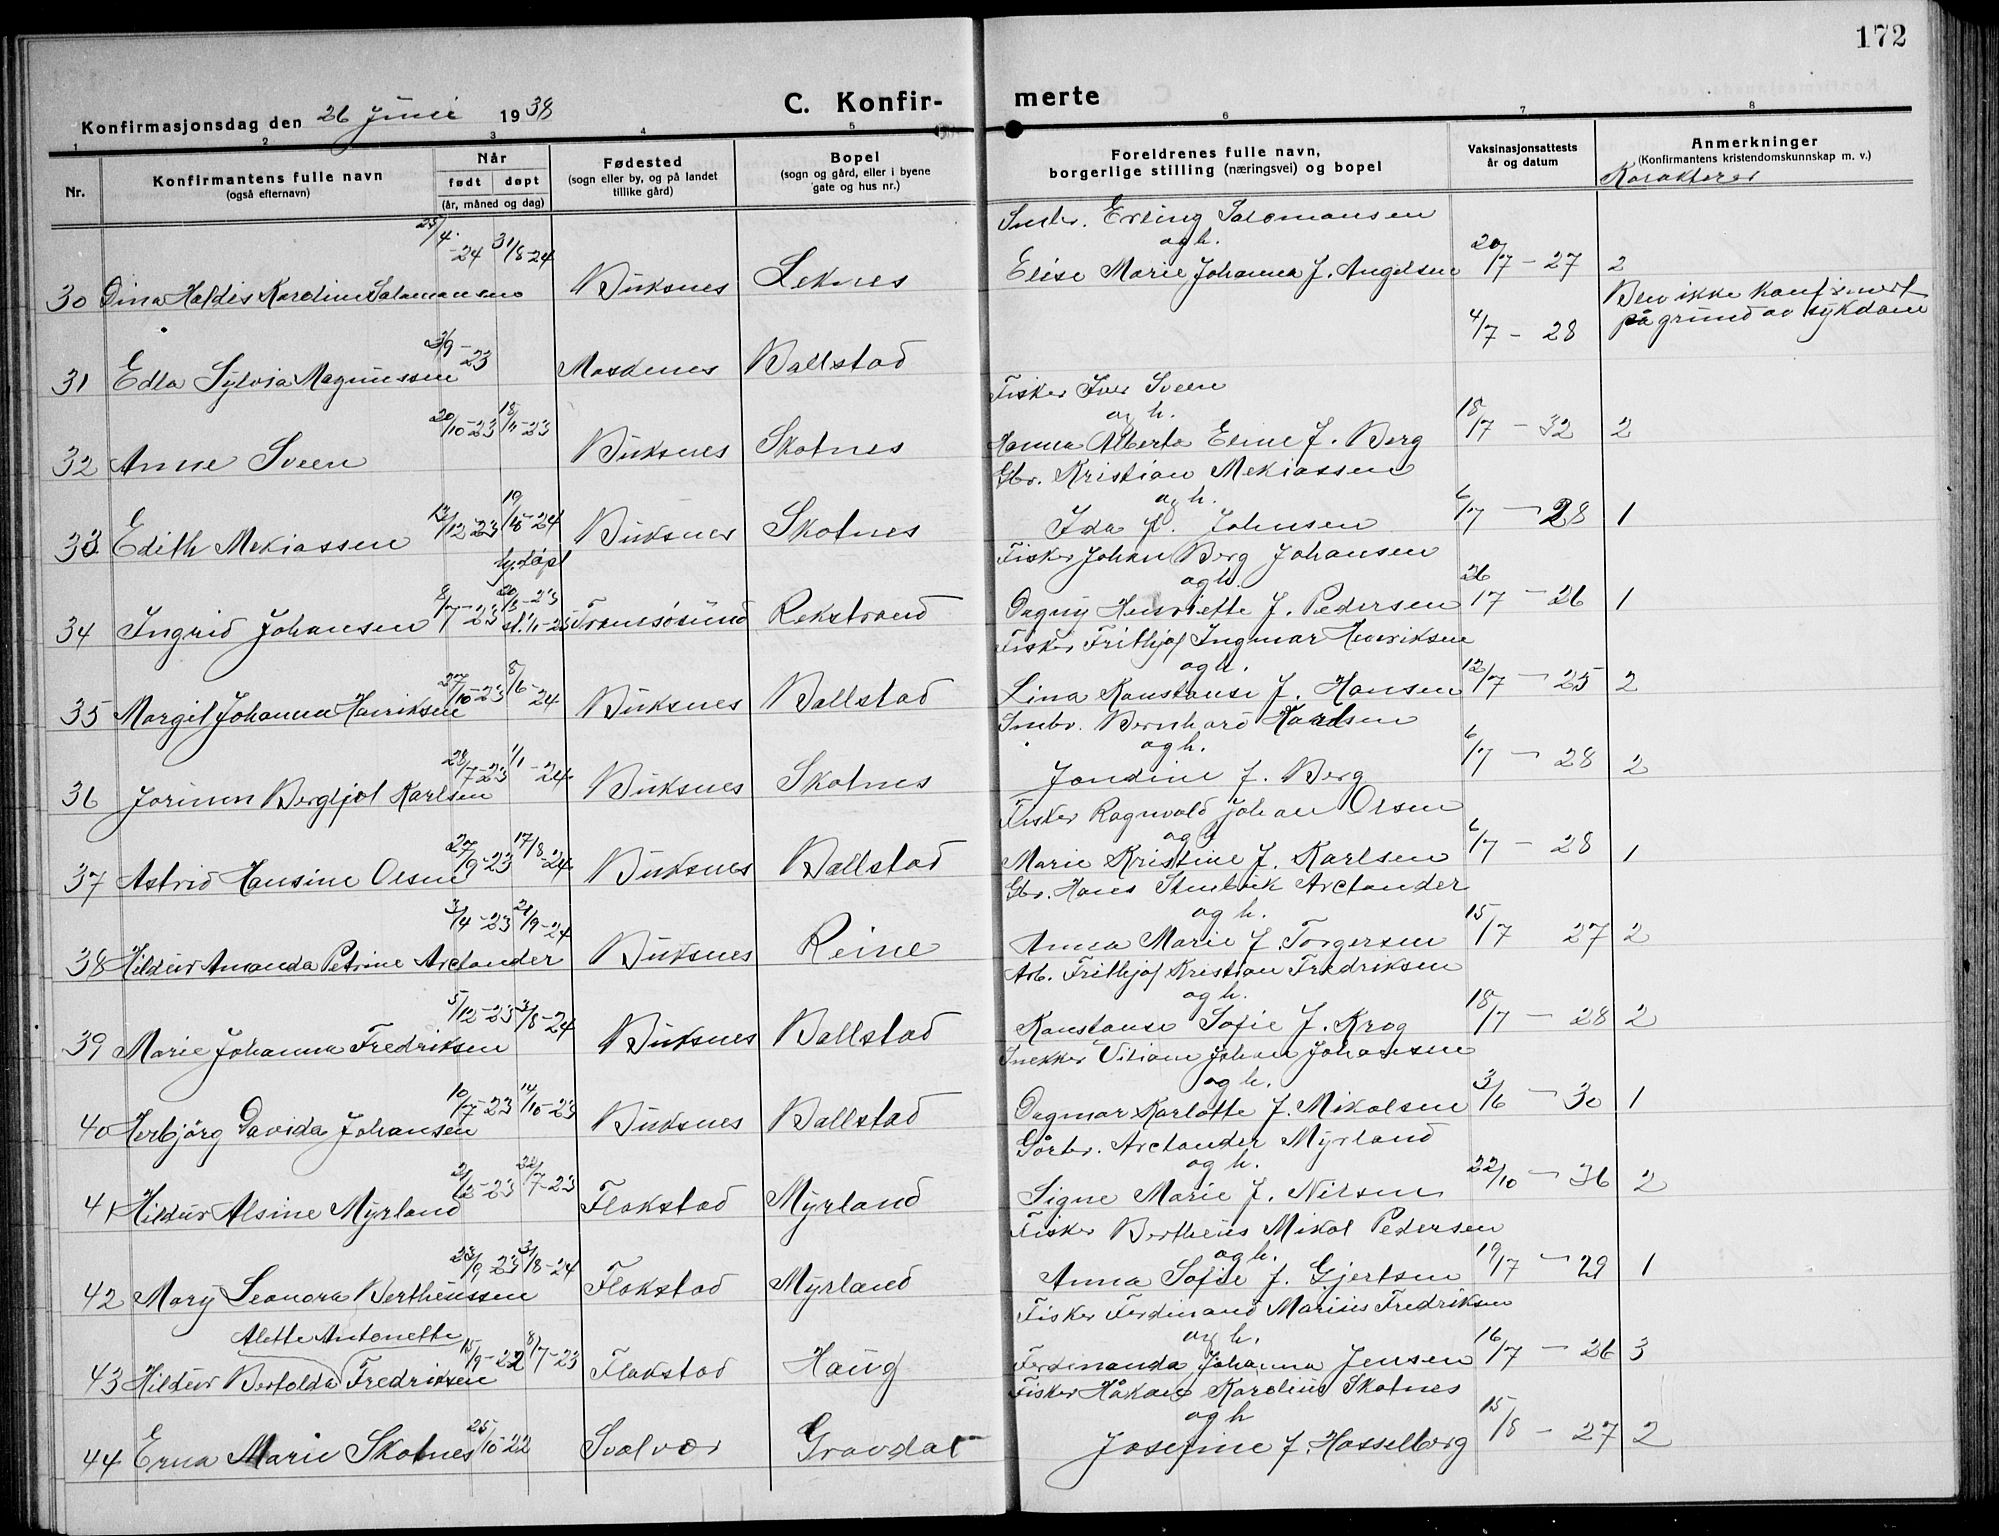 172
C. Konfirmerte
Konfirmasjonsdag den 26 Juni 1938
1 2 3 4 5 6 7 8
Nr.
Konfirmantens fulle navn
(også efternavn)
Når
født døpt
(år, måned og dag)
Fødested
(sogn eller by, og på landet
tillike gård)
Bopel
(sogn og gård, eller i byene
gate og hus nr.)
Foreldrenes fulle navn,
borgerlige stilling (næringsvei) og bopel
Vaksinasjonsattests
år og datum
Anmerkninger
(Konfirmantens kristendomskunnskap m. v.)
Karakterer
Småbr. Erling Salomonsen
og h.
30 Dina Haldis Karoline Salamonsen 25/4-24 31/8-24 Buksnes Leknes Elise Marie Johanna f. Angelsen 20/7-27 2
31 Edla Sylvia Magnussen 2/9-23 Moskenes Ballstad 4/7-28 Blev ikke konfirmert
på grund av sykdom
Fisker Iver Sveen
og h.
32 Anne Sveen 20/10-23 18/11-23 Buksnes Skotnes Hanna Alberta Eline f. Berg 18/7-32 2
Gbr. Kristian Mekiassen
og h.
33 Edith Mekiassen 13/12-23 19/10-24 Buksnes Skotnes Ida f. Johnsen 6/7-28 1
Fisker Johan Berg Johansen
og h.
hj.døpt
34 Ingrid Johansen 8/7-23 20/8-23 st. 1/11-25 Tromsøsund Rekstrand Dagny Henriette f. Pedersen 26/7-26 1
Fisker Frithjof Ingmar Henriksen
og h.
35 Margit Johanna Henriksen 27/10-23 8/6-24 Buksnes Ballstad Lina Konstanse f. Hansen 12/7-25 2
Småbr. Bernhard Karlsen
og h.
36 Jorunn Bergljot Karlsen 28/7-23 1/1-24 Buksnes Skotnes Jondine f. Berg 6/7-28 2
Fisker Ragnvald Johan Olsen
og h
37 Astrid Hansine Olsen 27/9-23 17/8-24 Buksnes Ballstad Marie Kristine f. Karlsen 6/7-28 1
Gbr. Hans Stenbuk Arctander
og h.
38 Hildur Amanda Petrine Arctander 3/4-23 21/9-24 Buksnes Reine Anna Marie f. Torgersen 15/7 27 2
Arb. Frithjof Kristian Fredriksen
og h.
39 Marie Johanna Fredriksen 5/12-23 3/8-24 Buksnes Ballstad Konstanse Sofie f. Krog 18/7-28 2
Snekker Viliam Johan Johansen
og h.
40 Herbjörg Davida Johansen 10/7-23 14/10-23 Buksnes Ballstad Dagmar Karlotte f. Mikalsen 3/6-30 1
Gårbr. Arctander Myrland
og h.
41 Hildur Alsine Myrland 2/2-23 22/7-23 Flakstad Myrland Signe Marie f. Nilsen 22/10-36 2
Fisker Bertheus Mikal Pedersen
og h.
42 Mary Leonora Bertheussen 23/9-23 31/8-24 Flakstad Myrland Anna Sofie f. Gjertsen 19/7-29 1
Fisker Ferdinand Marius Fredriksen
og h.
Alette Antonette
43 Hildur Bertolda Fredriksen 15/9-22 8/7-23 Flakstad Haug Ferdinanda Johanna Jensen 16/7-26 3
Fisker Håkon Karolius Skotnes
og h
44 Erna Marie Skotnes 25/10-22 Svolvær Gravdal Josefine f. Hasselberg 15/8-27 2